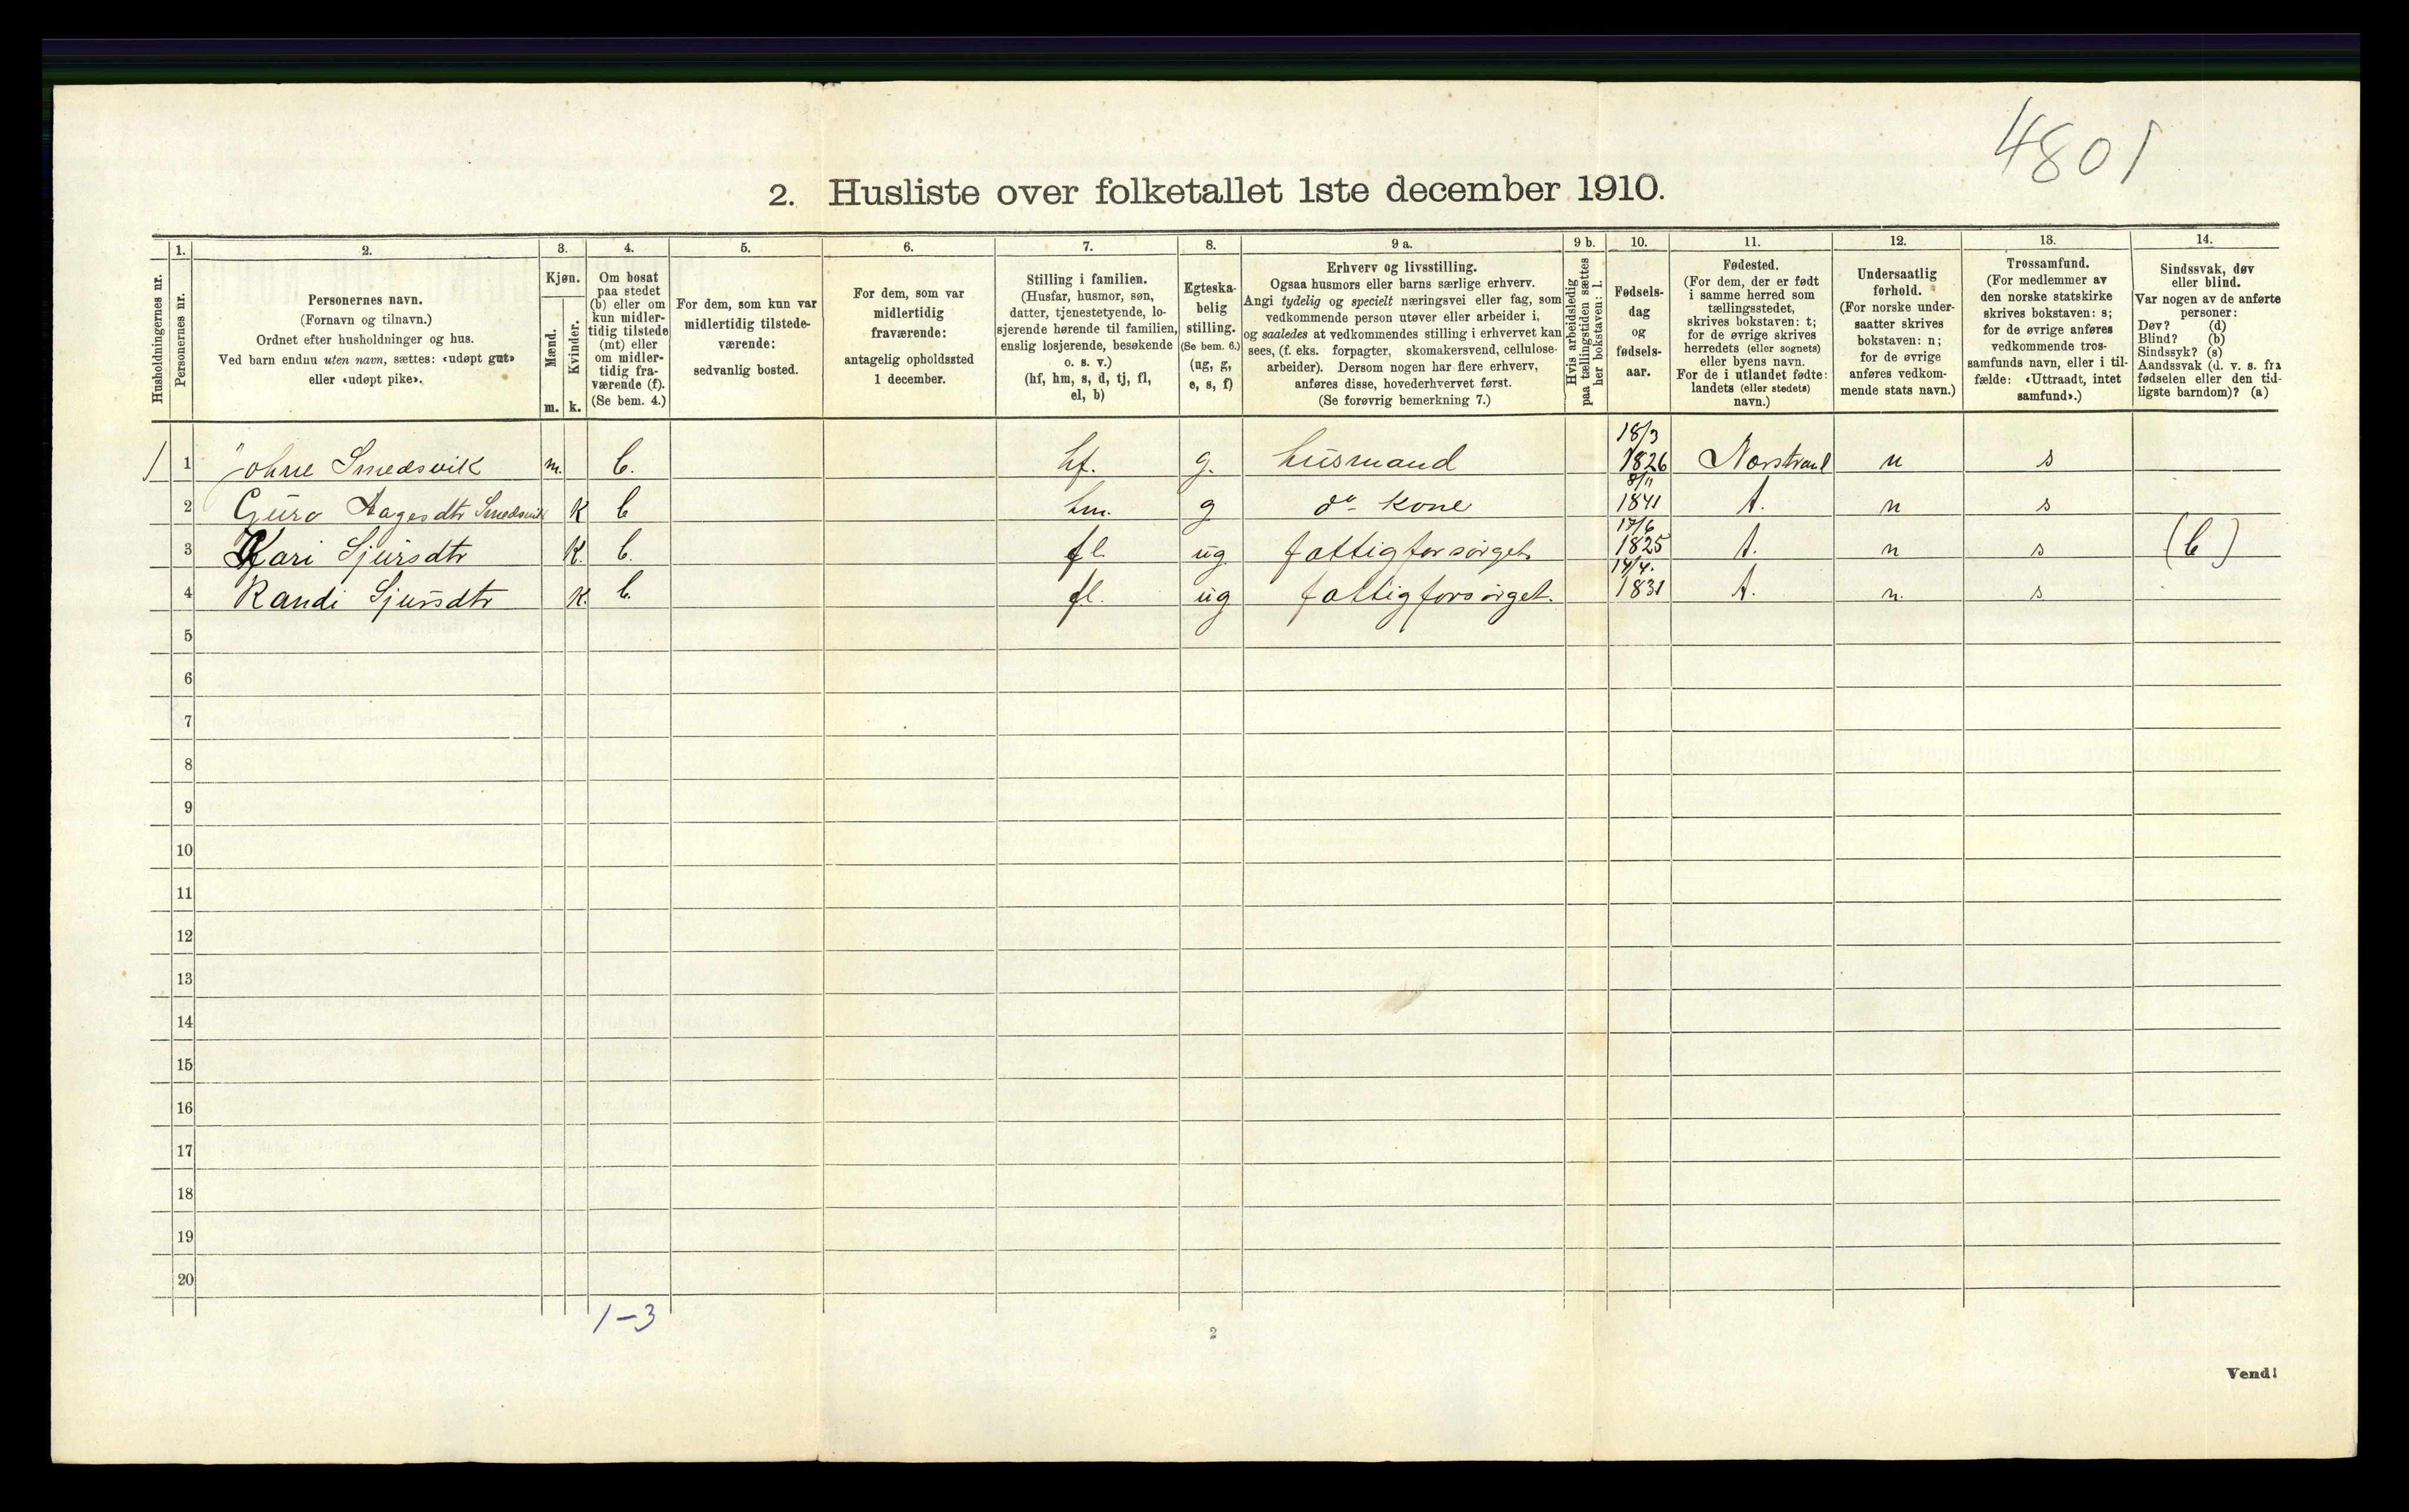 4801
2. Husliste over folketallet 1ste december 1910.
Husholdningernes nr.
1.
Personernes nr.
2.
Personernes navn.
(Fornavn og tilnavn.)
Ordnet efter husholdninger og hus.
Ved barn endnu uten navn, sættes: «udøpt gut»
eller «udøpt pike».
3.
Kjøn.
Mænd.
Kvinder.
m. k.
4.
Om bosat
paa stedet
(b) eller om
kun midler-
tidig tilstede
(mt) eller
om midler-
tidig fra-
værende (f).
(Se bem. 4.)
5.
For dem, som kun var
midlertidig tilstede-
værende:
sedvanlig bosted.
6.
For dem, som var
midlertidig
fraværende:
antagelig opholdssted
1 december.
7.
Stilling i familien.
(Husfar, husmor, søn,
datter, tjenestetyende, lo-
sjerende hørende til familien,
enslig losjerende, besøkende
o. s. v.)
(hf, hm, s, d, tj, fl,
el, b)
8.
Egteska-
belig
stilling.
(Se bem. 6.)
(ug, g,
e, s, f)
9 a.
Erhverv og livsstilling.
Ogsaa husmors eller barns særlige erhverv.
Angi tydelig og specielt næringsvei eller fag, som
vedkommende person utøver eller arbeider i,
og saaledes at vedkommendes stilling i erhvervet kan
sees, (f. eks. forpagter, skomakersvend, cellulose-
arbeider). Dersom nogen har flere erhverv,
anføres disse, hovederhvervet først.
(Se forøvrig bemerkning 7.)
9 b.
Hvis arbeidsledig
paa tællingstiden sættes
her bokstaven: l.
10.
Fødsels-
dag
og
fødsels-
aar.
11.
Fødested.
(For dem, der er født
i samme herred som
tællingsstedet,
skrives bokstaven: t;
for de øvrige skrives
herredets (eller sognets)
eller byens navn.
For de i utlandet fødte:
landets (eller stedets)
navn.)
12.
Undersaatlig
forhold.
(For norske under-
saatter skrives
bokstaven: n;
for de øvrige
anføres vedkom-
mende stats navn.)
13.
Trossamfund.
(For medlemmer av
den norske statskirke
skrives bokstaven: s;
for de øvrige anføres
vedkommende tros-
samfunds navn, eller i til-
fælde: «Uttraadt, intet
samfund».)
14.
Sindssvak, døv
eller blind.
Var nogen av de anførte
personer:
Døv? (d)
Blind? (b)
Sindssyk? (s)
Aandssvak (d. v. s. fra
fødselen eller den tid-
ligste barndom)? (a)
1 1 Johne Smedsvik m. b. hf. g. husmand 18/3 1826 Norstrand n s
2 Guro Aagesdtr Smedsvik K b hm. g do kone 8/11 1841 t. n s
3 Kari Sjursdtr K. b. fl. ug fattigforsørget. 17/6 1825 t. n s (b)
4 Randi Sjursdtr K. b. fl. ug fattigforsørget. 14/4. 1831 t. n. s
5
6
7
8
9
10
11
12
13
14
15
16
17
18
19
20
1-3
2
Vend!